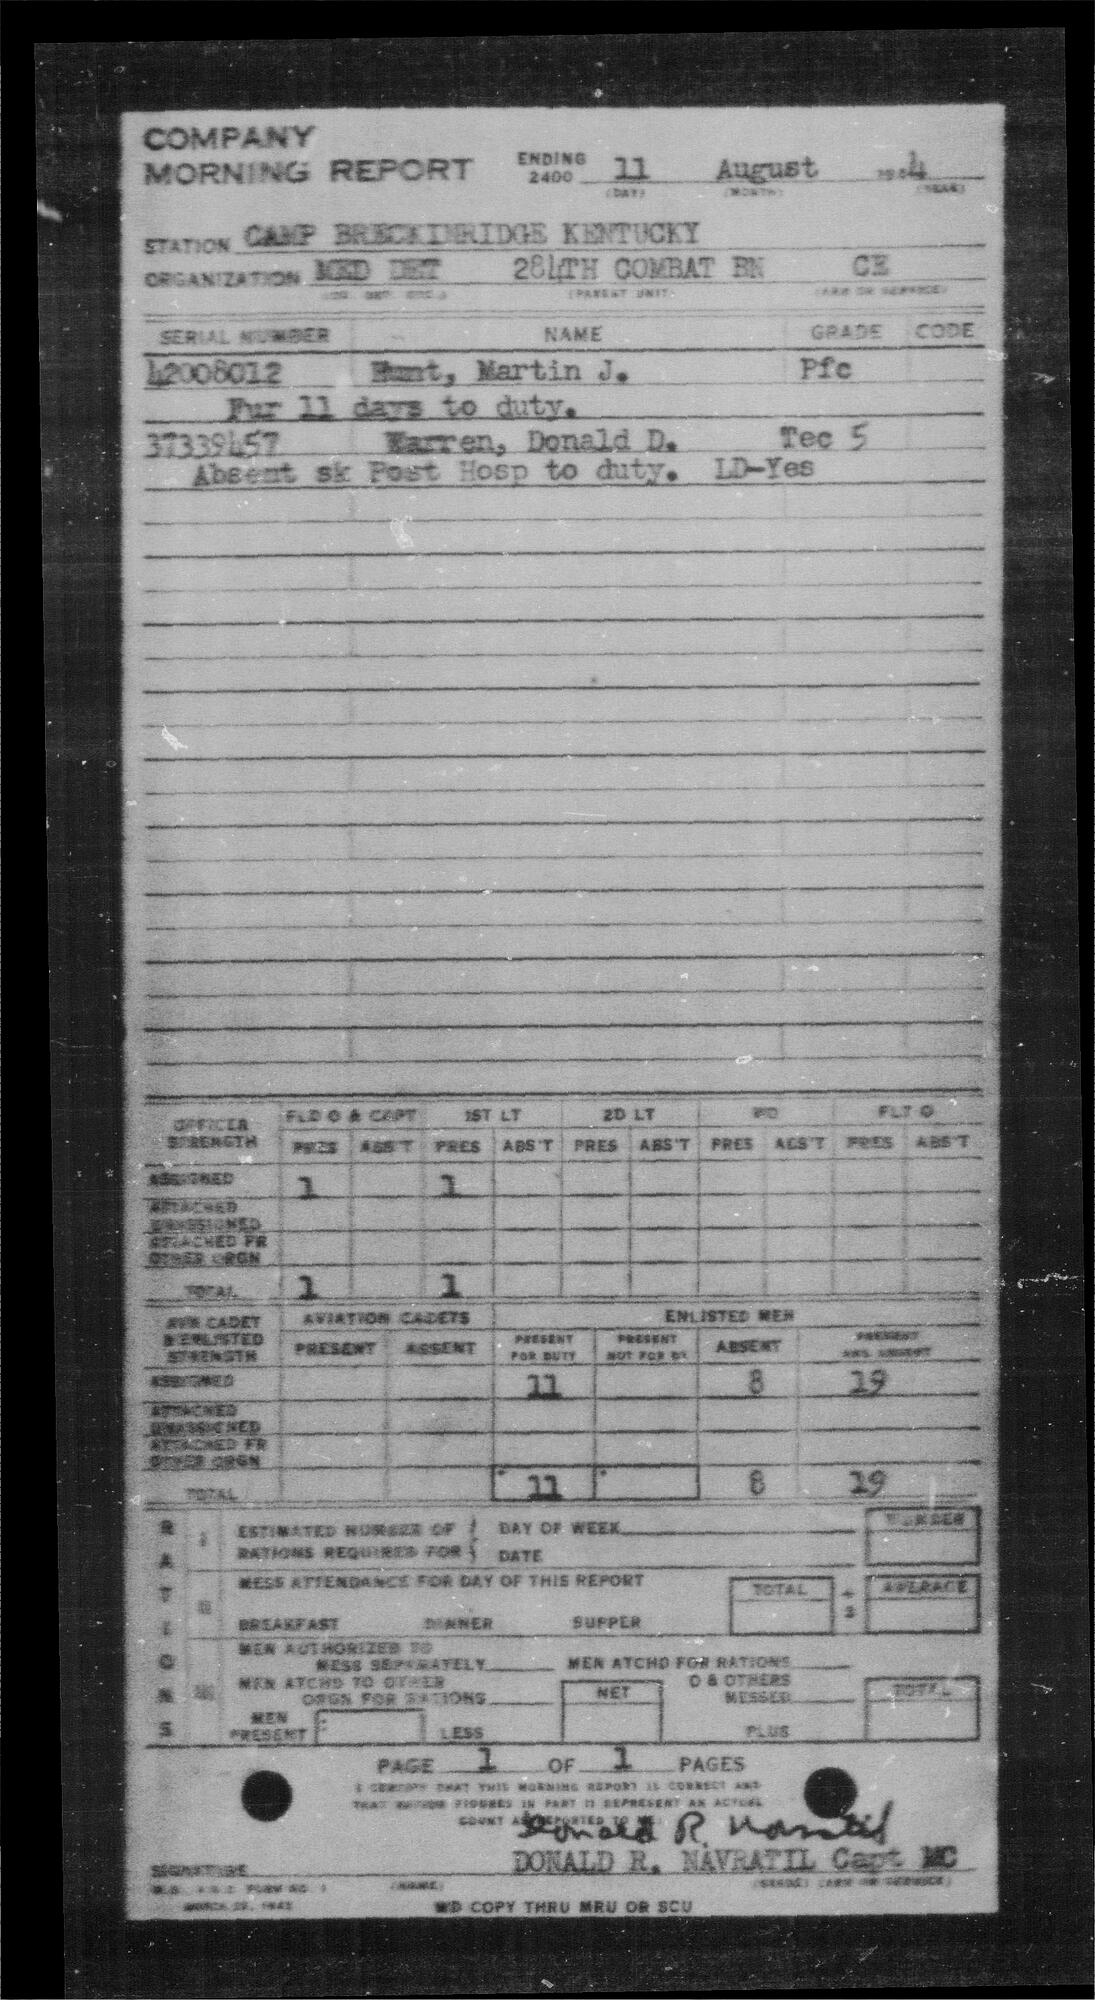 COMPANY
MORNING REPORT ENDING 2400 11 August 1944
(DAY) (MONTH) (YEAR)
STATION CAMP BRECKINRIDGE KENTUCKY
ORGANIZATION MED DET 284TH COMBAT BN CE
(PARENT UNIT) (ARM OR SERVICE)
SERIAL NUMBER NAME GRADE CODE
42008012 Hunt, Martin J. Pfc
Fur 11 days to duty.
37339457 Warren, Donald D. Tec 5
Absent sk Post Hosp to duty. LD-Yes
OFFICER STRENGTH FLD O & CAPT 1ST LT 2D LT WO FLT O
PRES ABS'T PRES ABS'T PRES ABS'T PRES ABS'T PRES ABS'T
ASSIGNED 1 1
ATTACHED UNASSIGNED
ATTACHED FR OTHER ORGN
TOTAL 1 1
AVN CADET & ENLISTED STRENGTH AVIATION CADETS ENLISTED MEN
PRESENT ABSENT PRESENT FOR DUTY PRESENT NOT FOR DY ABSENT PRESENT AND ABSENT
ASSIGNED 11 8 19
ATTACHED UNASSIGNED
ATTACHED FR OTHER ORGN
TOTAL 11 8 19
RATIONS
ESTIMATED NUMBER OF RATIONS REQUIRED FOR { DAY OF WEEK NUMBER
DATE
MESS ATTENDANCE FOR DAY OF THIS REPORT TOTAL ÷ 3 AVERAGE
BREAKFAST DINNER SUPPER
MEN AUTHORIZED TO MESS SEPARATELY MEN ATCHD FOR RATIONS
MEN ATCHD TO OTHER ORGN FOR RATIONS NET O & OTHERS MESSED TOTAL
MEN PRESENT LESS PLUS
PAGE 1 OF 1 PAGES
I CERTIFY THAT THIS MORNING REPORT IS CORRECT AND
THAT RATION FIGURES IN PART II REPRESENT AN ACTUAL
COUNT AS REPORTED TO ME:
Donald R. Navratil
DONALD R. NAVRATIL Capt MC
SIGNATURE
(NAME) (GRADE) (ARM OR SERVICE)
FORM NO. 1
MARCH 1943
WD COPY THRU MRU OR SCU